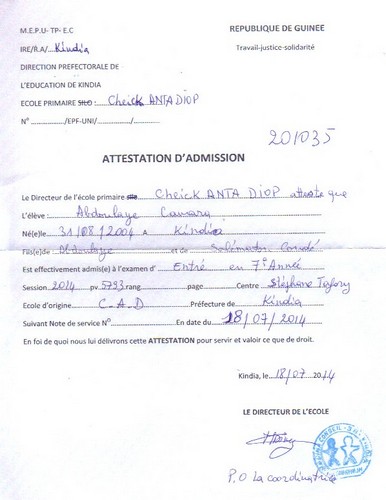 M.E.P.U- TP- E.C
REPUBLIQUE DE GUINEE
IRE/R.A/ Kindia
Travail-justice-solidarité
DIRECTION PREFECTORALE DE
L'EDUCATION DE KINDIA
ECOLE PRIMAIRE : Cheick ANTA DIOP
N° ............../EPF-UNI/............../..............
201035
ATTESTATION D'ADMISSION
Le Directeur de l'école primaire Cheick ANTA DIOP atteste que
L'élève : Abdoulaye Camara
Né(e)le 31/08/2004 A Kindia
Fils(e)de Abdoulaye et de Condé
Est effectivement admis(e) à l'examen d' Entré en 7e Année
Session 2014 pv 5793 rang page Centre Stéphane
Ecole d'origine C.A.D Préfecture de Kindia
Suivant Note de service N° En date du 18/07/2014
En foi de quoi nous lui délivrons cette ATTESTATION pour servir et valoir ce que de droit.
Kindia, le 18/07 2014
LE DIRECTEUR DE L'ECOLE
P.O La coordinatrice